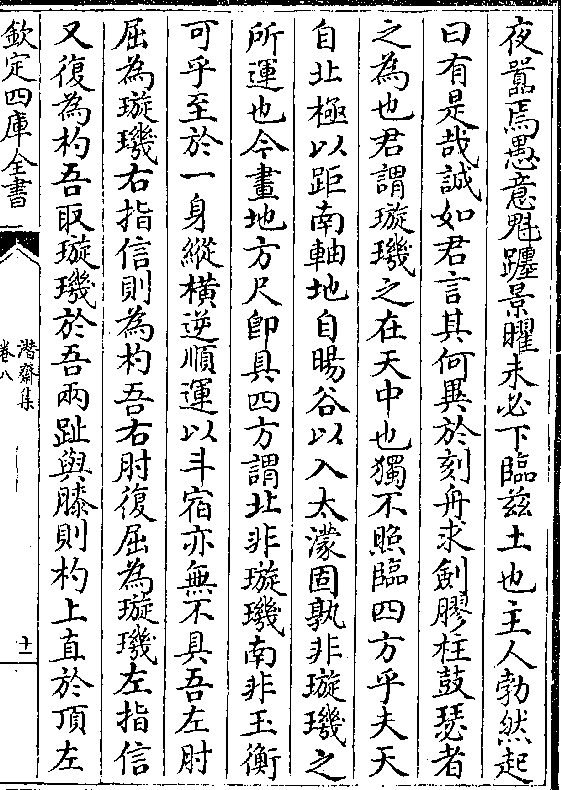 夜嚣焉愚意魁躔景曜未必下臨兹土也主人勃然起
曰有是哉誠如君言其何異於刻舟求劍膠柱鼓瑟者
之為也君謂璇璣之在天中也獨不照臨四方乎夫天
自北極以距南軸地自暘谷以入太濛固孰非璇璣之
所運也今畫地方尺卽具四方謂北非璇璣南非玉衡
可乎至於一身縱横逆順運以斗宿亦無不具吾左肘
屈為璇璣右指信則為杓吾右肘復屈為璇璣左指信
又復為杓吾取璇璣於吾兩趾與膝則杓上直於頂左
欽定四庫全書
潜齋集
卷八
十一